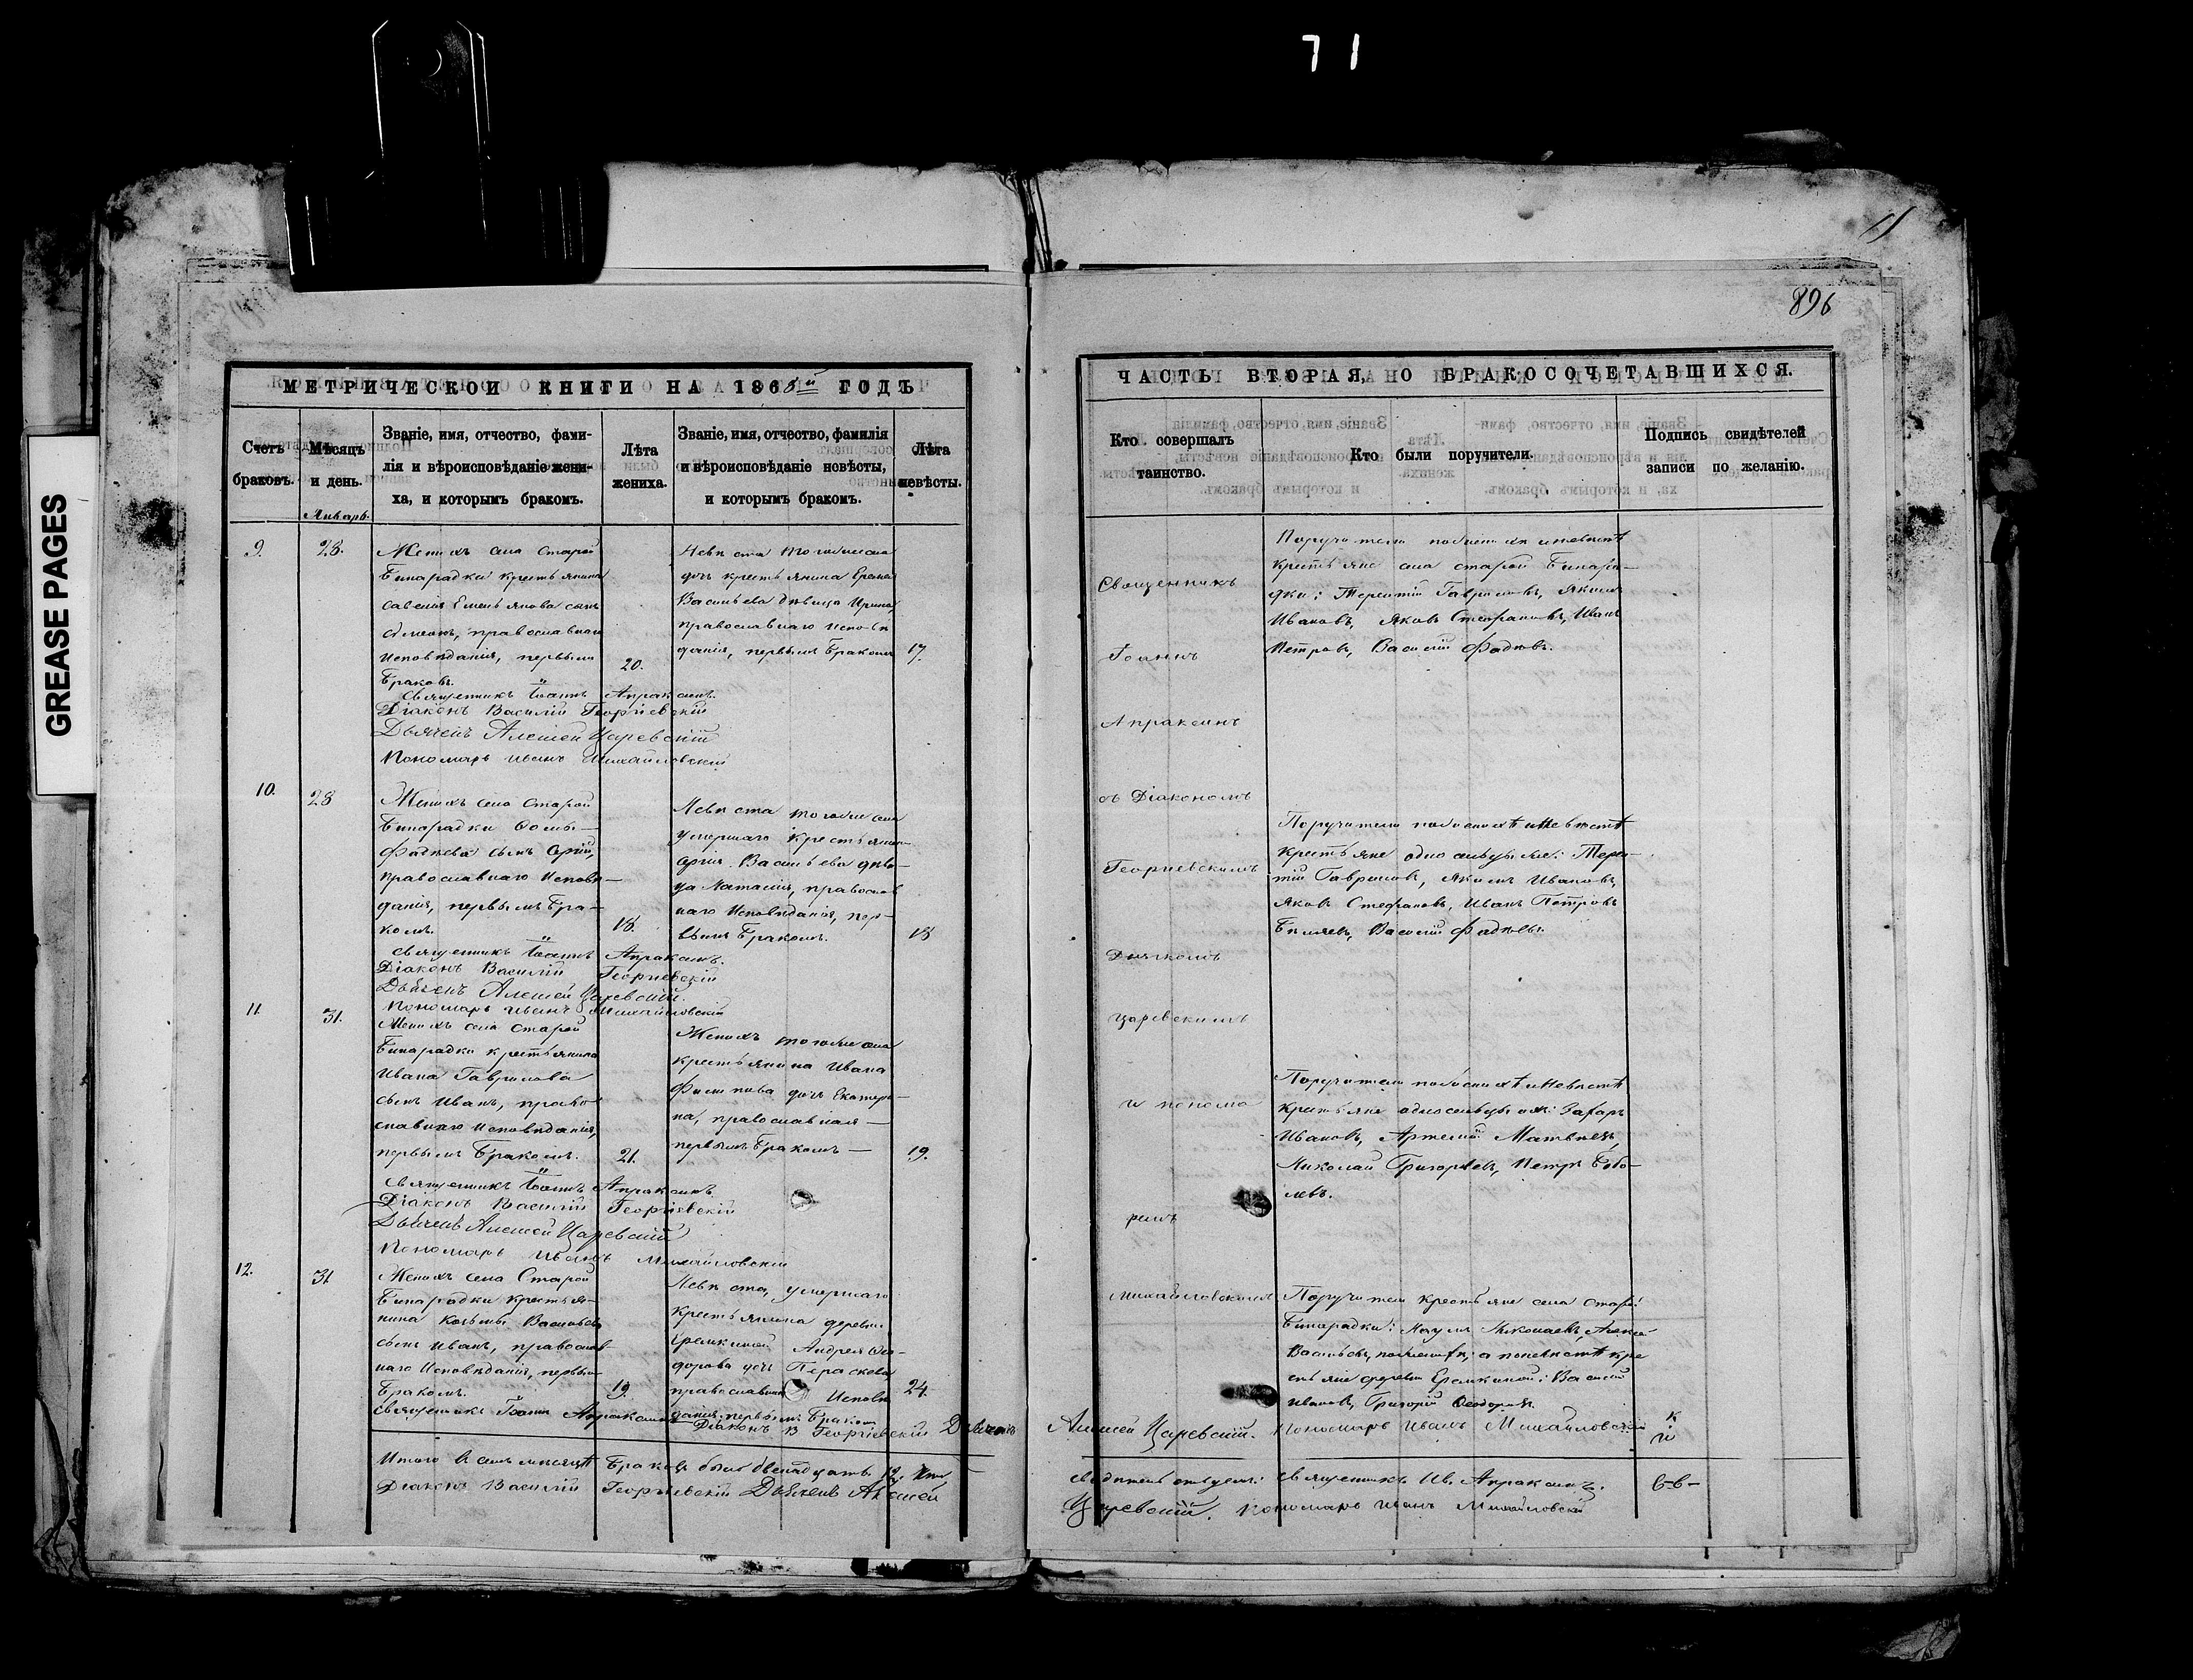 71
11
896
GREASE PAGES
МЕТРИЧЕСКОЙ КНИГИ НА 1865й ГОДЪ
Счетъ браковъ.
Мѣсяцъ и день.
Званіе, имя, отчество, фами-
лія и вѣроисповѣданіе жени-
ха, и которымъ бракомъ.
Лѣта жениха.
Званіе, имя, отчество, фамилія
и вѣроисповѣданіе невѣсты,
и которымъ бракомъ.
Лѣта невѣсты.
Январь.
9.
28.
Женихъ села Старой
Бинарадки крестьянина
Савелія Емельянова сынъ
православнаго
исповѣданія, первымъ
Бракомъ.
20.
Невѣста тогоже села
дочь крестьянина Еремея
Васильева дѣвица Ирина,
православнаго исповѣ
данія, первымъ Бракомъ
17.
Священникъ Іоаннъ Апраксинъ.
Діаконъ Василій Георгіевскій
Дьячекъ Алексей Царевскій
Пономарь Иванъ Михайловскій
10.
28
Женихъ села Старой
Бинарадки Фомы
Фадѣева сынъ Сергій,
православнаго исповѣ-
данія, первымъ Бра-
комъ.
18.
Невѣста тогоже села
умершаго крестьянина
Сергія Васильева дѣви-
ца Наталія, православ
наго исповѣданія, пер-
вымъ Бракомъ.
18
Священникъ Іоаннъ Апраксинъ.
Діаконъ Василій Георгіевскій
Дьячекъ Алексей Царевскій.
Пономарь Иванъ Михайловскій
11.
31.
Женихъ села Старой
Бинарадки крестьянина
Ивана Гаврилова
сынъ Иванъ, право
славнаго исповѣданія,
первымъ Бракомъ.
21.
Женихъ тогоже села
крестьянина Ивана
Филипова дочь Екатери-
на, православная
первымъ Бракомъ —
19.
Священникъ Іоаннъ Апраксинъ
Діаконъ Василій Георгіевскій
Дьячекъ Алексей Царевскій
Пономарь Иванъ Михайловскій
12.
31
Женихъ села Старой
Бинарадки крестья-
нина Козьмы Васильева
сынъ Иванъ, православ
наго исповѣданія, первымъ
Бракомъ.
19.
Невѣста, умершаго
крестьянина деревни
Еремкиной Андрея Ѳео-
дорова дочь Параскева
исповѣ
данія, первымъ Бракомъ
24.
Священникъ Іоаннъ Апраксинъ
Діаконъ В Георгіевскій Дьячекъ
Итого въ семъ мѣсяцѣ Браковъ было двенадцать 12.
Діаконъ Василій Георгіевскій Дьячекъ Алексей
ЧАСТЬ ВТОРАЯ, О БРАКОСОЧЕТАВШИХСЯ.
Кто совершалъ таинство.
Кто были поручители.
Подпись свидѣтелей записи по желанію.
Священникъ
Іоаннъ
Апраксинъ
съ Діакономъ
Георгіевскимъ
Дьячкомъ
Царевскимъ
и понома
ремъ
Михайловскимъ
Поручители по женихѣ и невѣстѣ
крестьяне села старой Бинара-
дки: Терентій Гавриловъ, Якимъ
Ивановъ, Яковъ Стефановъ, Иванъ
Петровъ, Василій Фадѣевъ.
Поручители по женихѣ и невѣстѣ
крестьяне односельцы же: Терен-
тій Гавриловъ, Якимъ Ивановъ,
Яковъ Стефановъ, Иванъ Петровъ
Василій Фадѣевъ.
Поручители по женихѣ и невѣстѣ
крестьяне односельцы Захаръ
Ивановъ, Артемій Матвѣевъ,
Николай Григорьевъ, Петръ
Поручители крестьяне села старой
Бинарадки: Наумъ Николаевъ, Алексей
Васильевъ, а по невѣстѣ кре
стьяне деревни Еремкиной: Василій
Ивановъ, Григорій Ѳеодоровъ
Алексей Царевскій. Пономарь Иванъ Михайловскій
Священникъ Ив. Апраксинъ.
Царевскій. Пономарь Иванъ Михайловскій